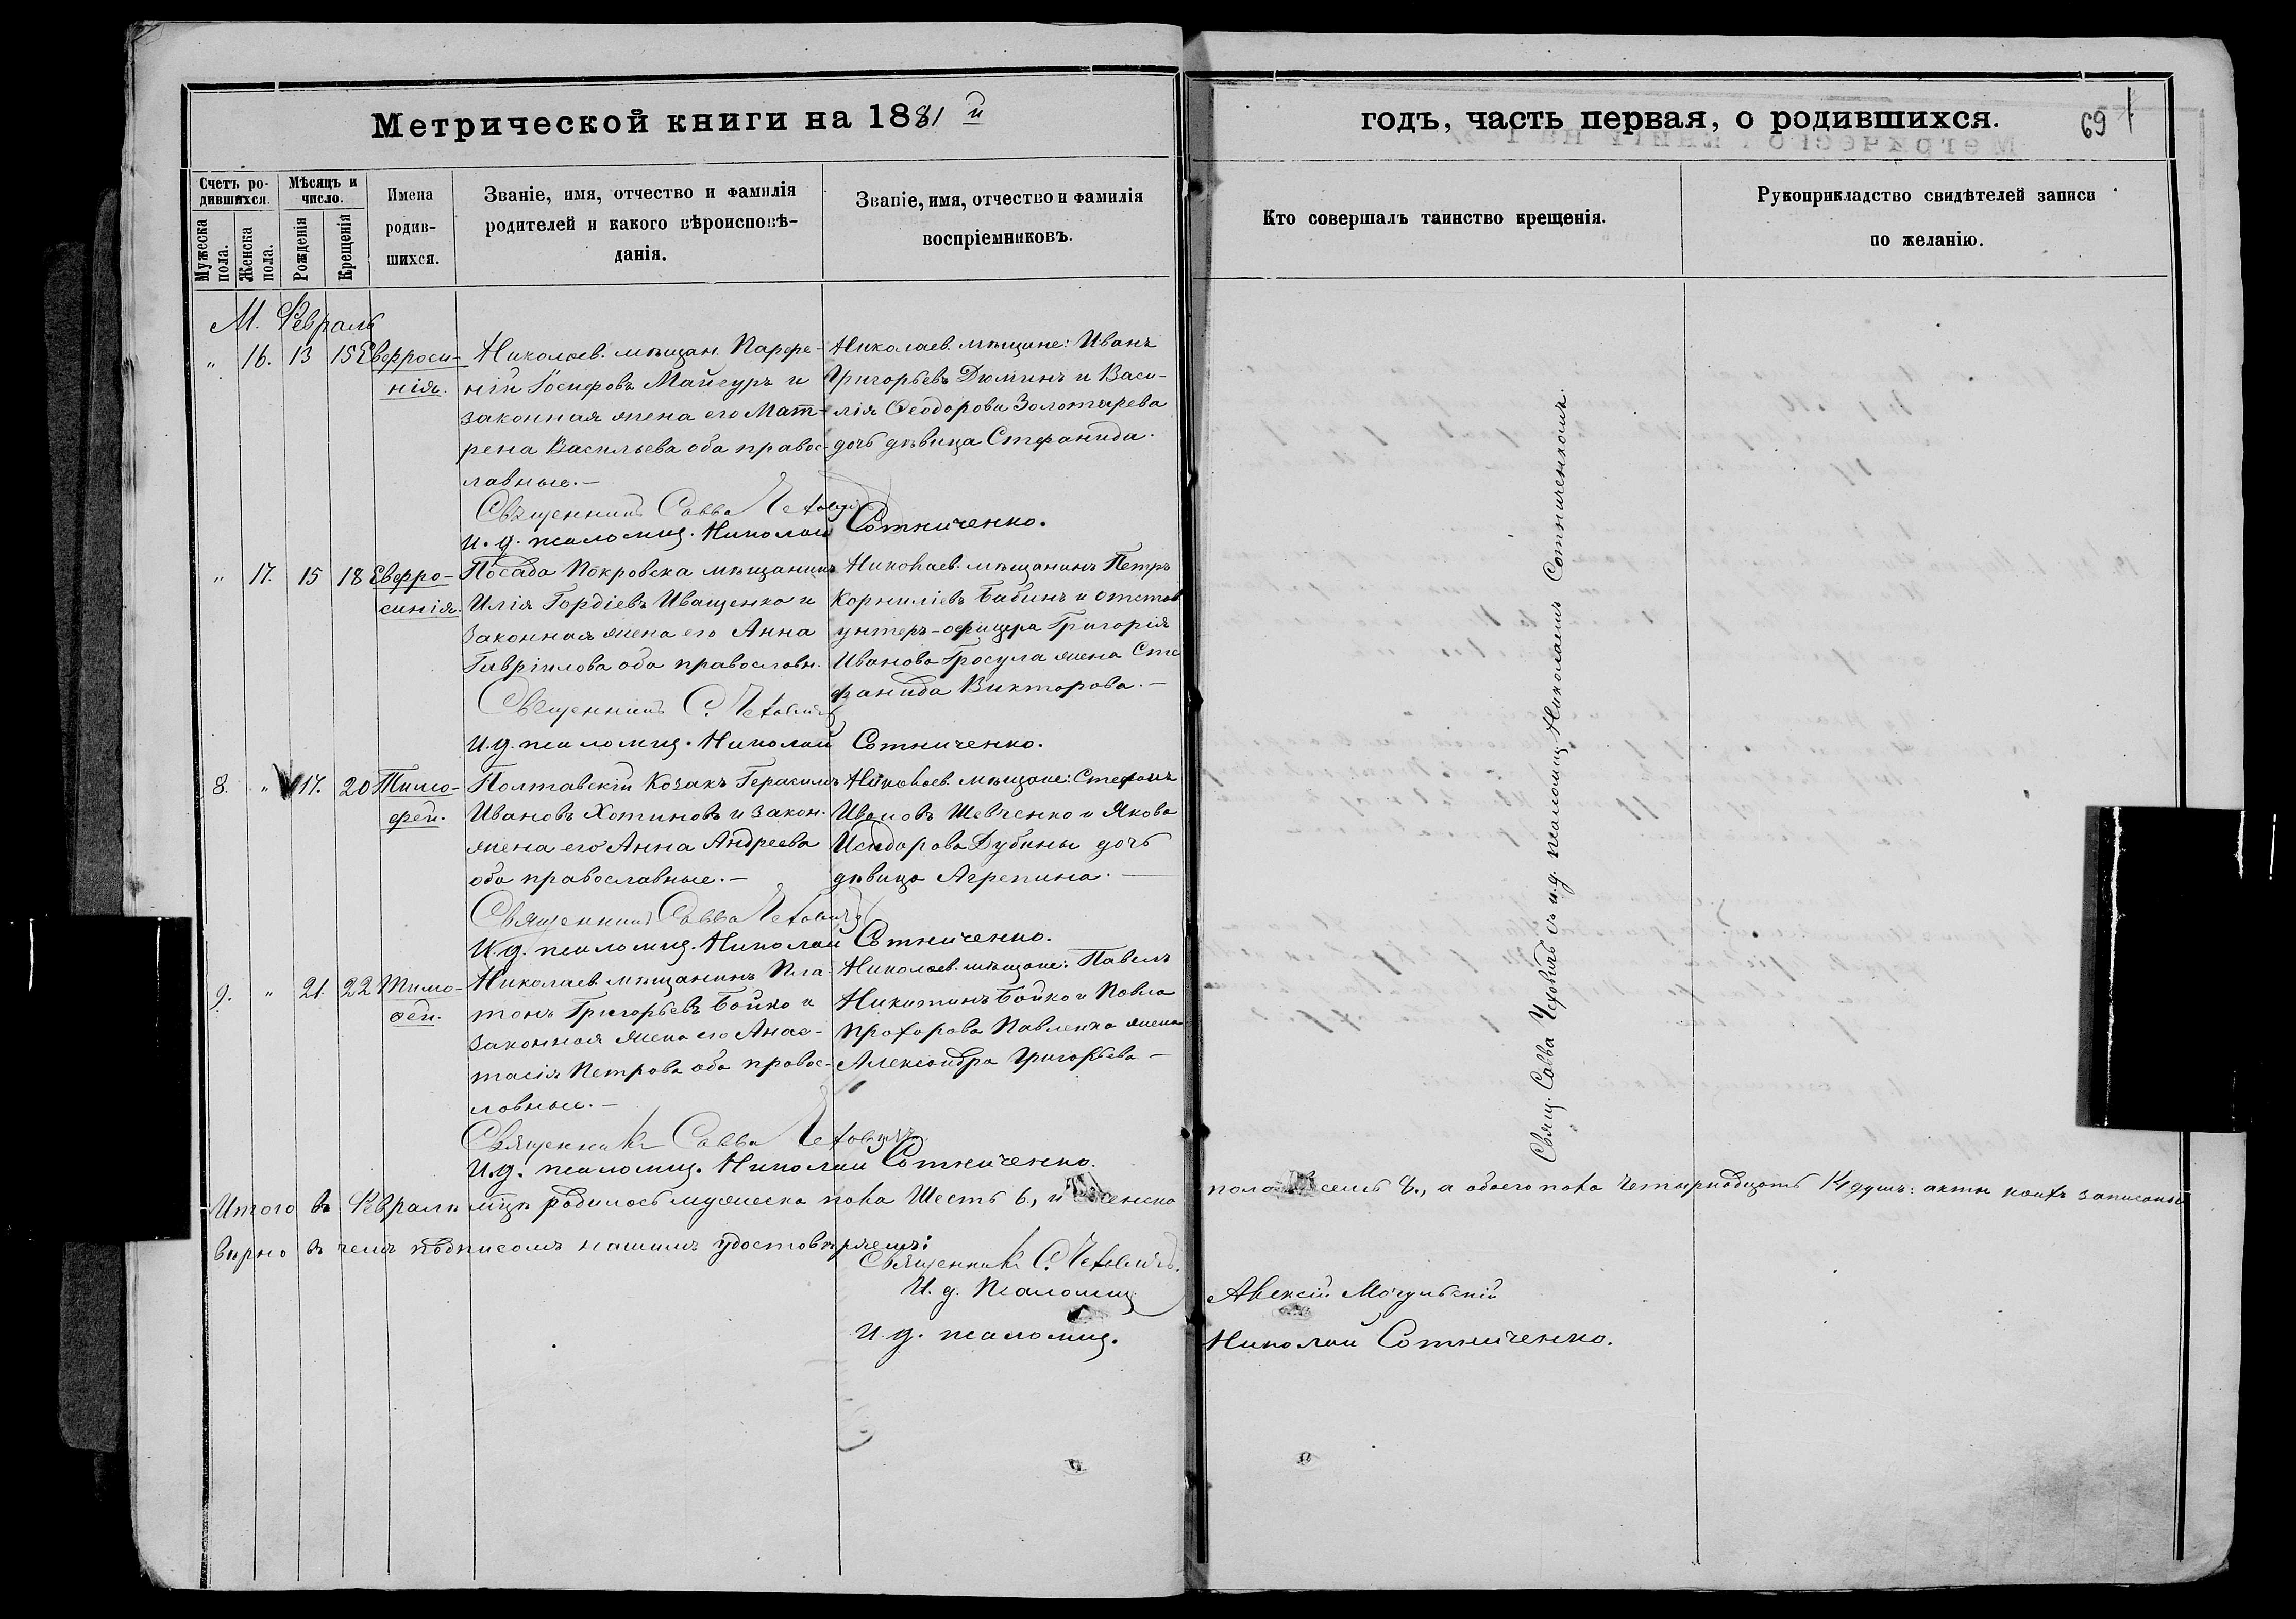 Метрической книги на 1881 й
годъ, часть первая, о родившихся.
69
Счетъ ро-
дившихся.
Мѣсяцъ и
число.
Мужеска
пола.
Женска
пола.
Рожденія
Крещенія
Имена
родив-
шихся.
Званіе, имя, отчество и фамилія
родителей и какого вѣроисповѣ-
данія.
Званіе, имя, отчество и фамилія
воспріемниковъ.
Кто совершалъ таинство крещенія.
Рукоприкладство свидѣтелей записи
по желанію.
М. Февраль
" 16. 13 15 Евфроси-
нія.
Николаев. мѣщан. Парфе-
ній Іосифовъ Майсуръ и
законная жена его Мат-
рена Васильева оба правос-
лавные. —
Николаев. мѣщане: Иванъ
Григорьевъ Дюминъ и Васи-
лія Ѳеодорова Золотарева
дочь дѣвица Стефанида.
Священникъ Савва Чеховичъ
И. д. псаломщ. Николай Сотниченко.
" 17. 15 18 Евфро-
синія.
Посада Покровска мѣщанинъ
Илія Гордіевъ Иващенко и
законная жена его Анна
Гавріилова оба православн.
Николаев. мѣщанинъ Петръ
Корниліевъ Бабинъ и отстав
унтеръ-офицера Григорія
Иванова Гросула жена Сте
фанида Викторова. —
Священникъ С. Чеховичъ
И. д. псаломщ. Николай Сотниченко.
8. " 17. 20 Тимо-
фей.
Полтавскій Козакъ Герасимъ
Ивановъ Хотиновъ и закон.
жена его Анна Андреева
оба православные. —
Николаев. мѣщане: Стефанъ
Ивановъ Шевченко и Якова
Исидорова Дубины дочь
дѣвица Агрепина. —
Священникъ Савва Чеховичъ
И. д. псаломщ. Николай Сотниченко.
9. " 21. 22 Тимо-
ѳей.
Николаев. мѣщанинъ Пла-
тонъ Григорьевъ Бойко и
законная жена его Анас-
тасія Петрова оба правос-
лавные. —
Николаев. мѣщане: Павелъ
Никитинъ Бойко и Павла
Прохорова Павленка жена
Александра Григорьева —
Священникъ Савва Чеховичъ
И. д. псаломщ. Николай Сотниченко.
Свящ. Савва Чеховичъ съ и. д. псаломщ. Николаемъ Сотниченкомъ.
Итого въ Февралѣ мцѣ родилось мужеска пола Шесть 6, и женска пола семь 8., а обоего пола Четырнадцать 14 душъ: акты коихъ записаны
вѣрно въ чемъ подписомъ нашимъ удостовѣряемъ:
Священникъ С. Чеховичъ.
И. д. Псаломщ. Алексій Могульскій
И. д. псаломщ. Николай Сотниченко.